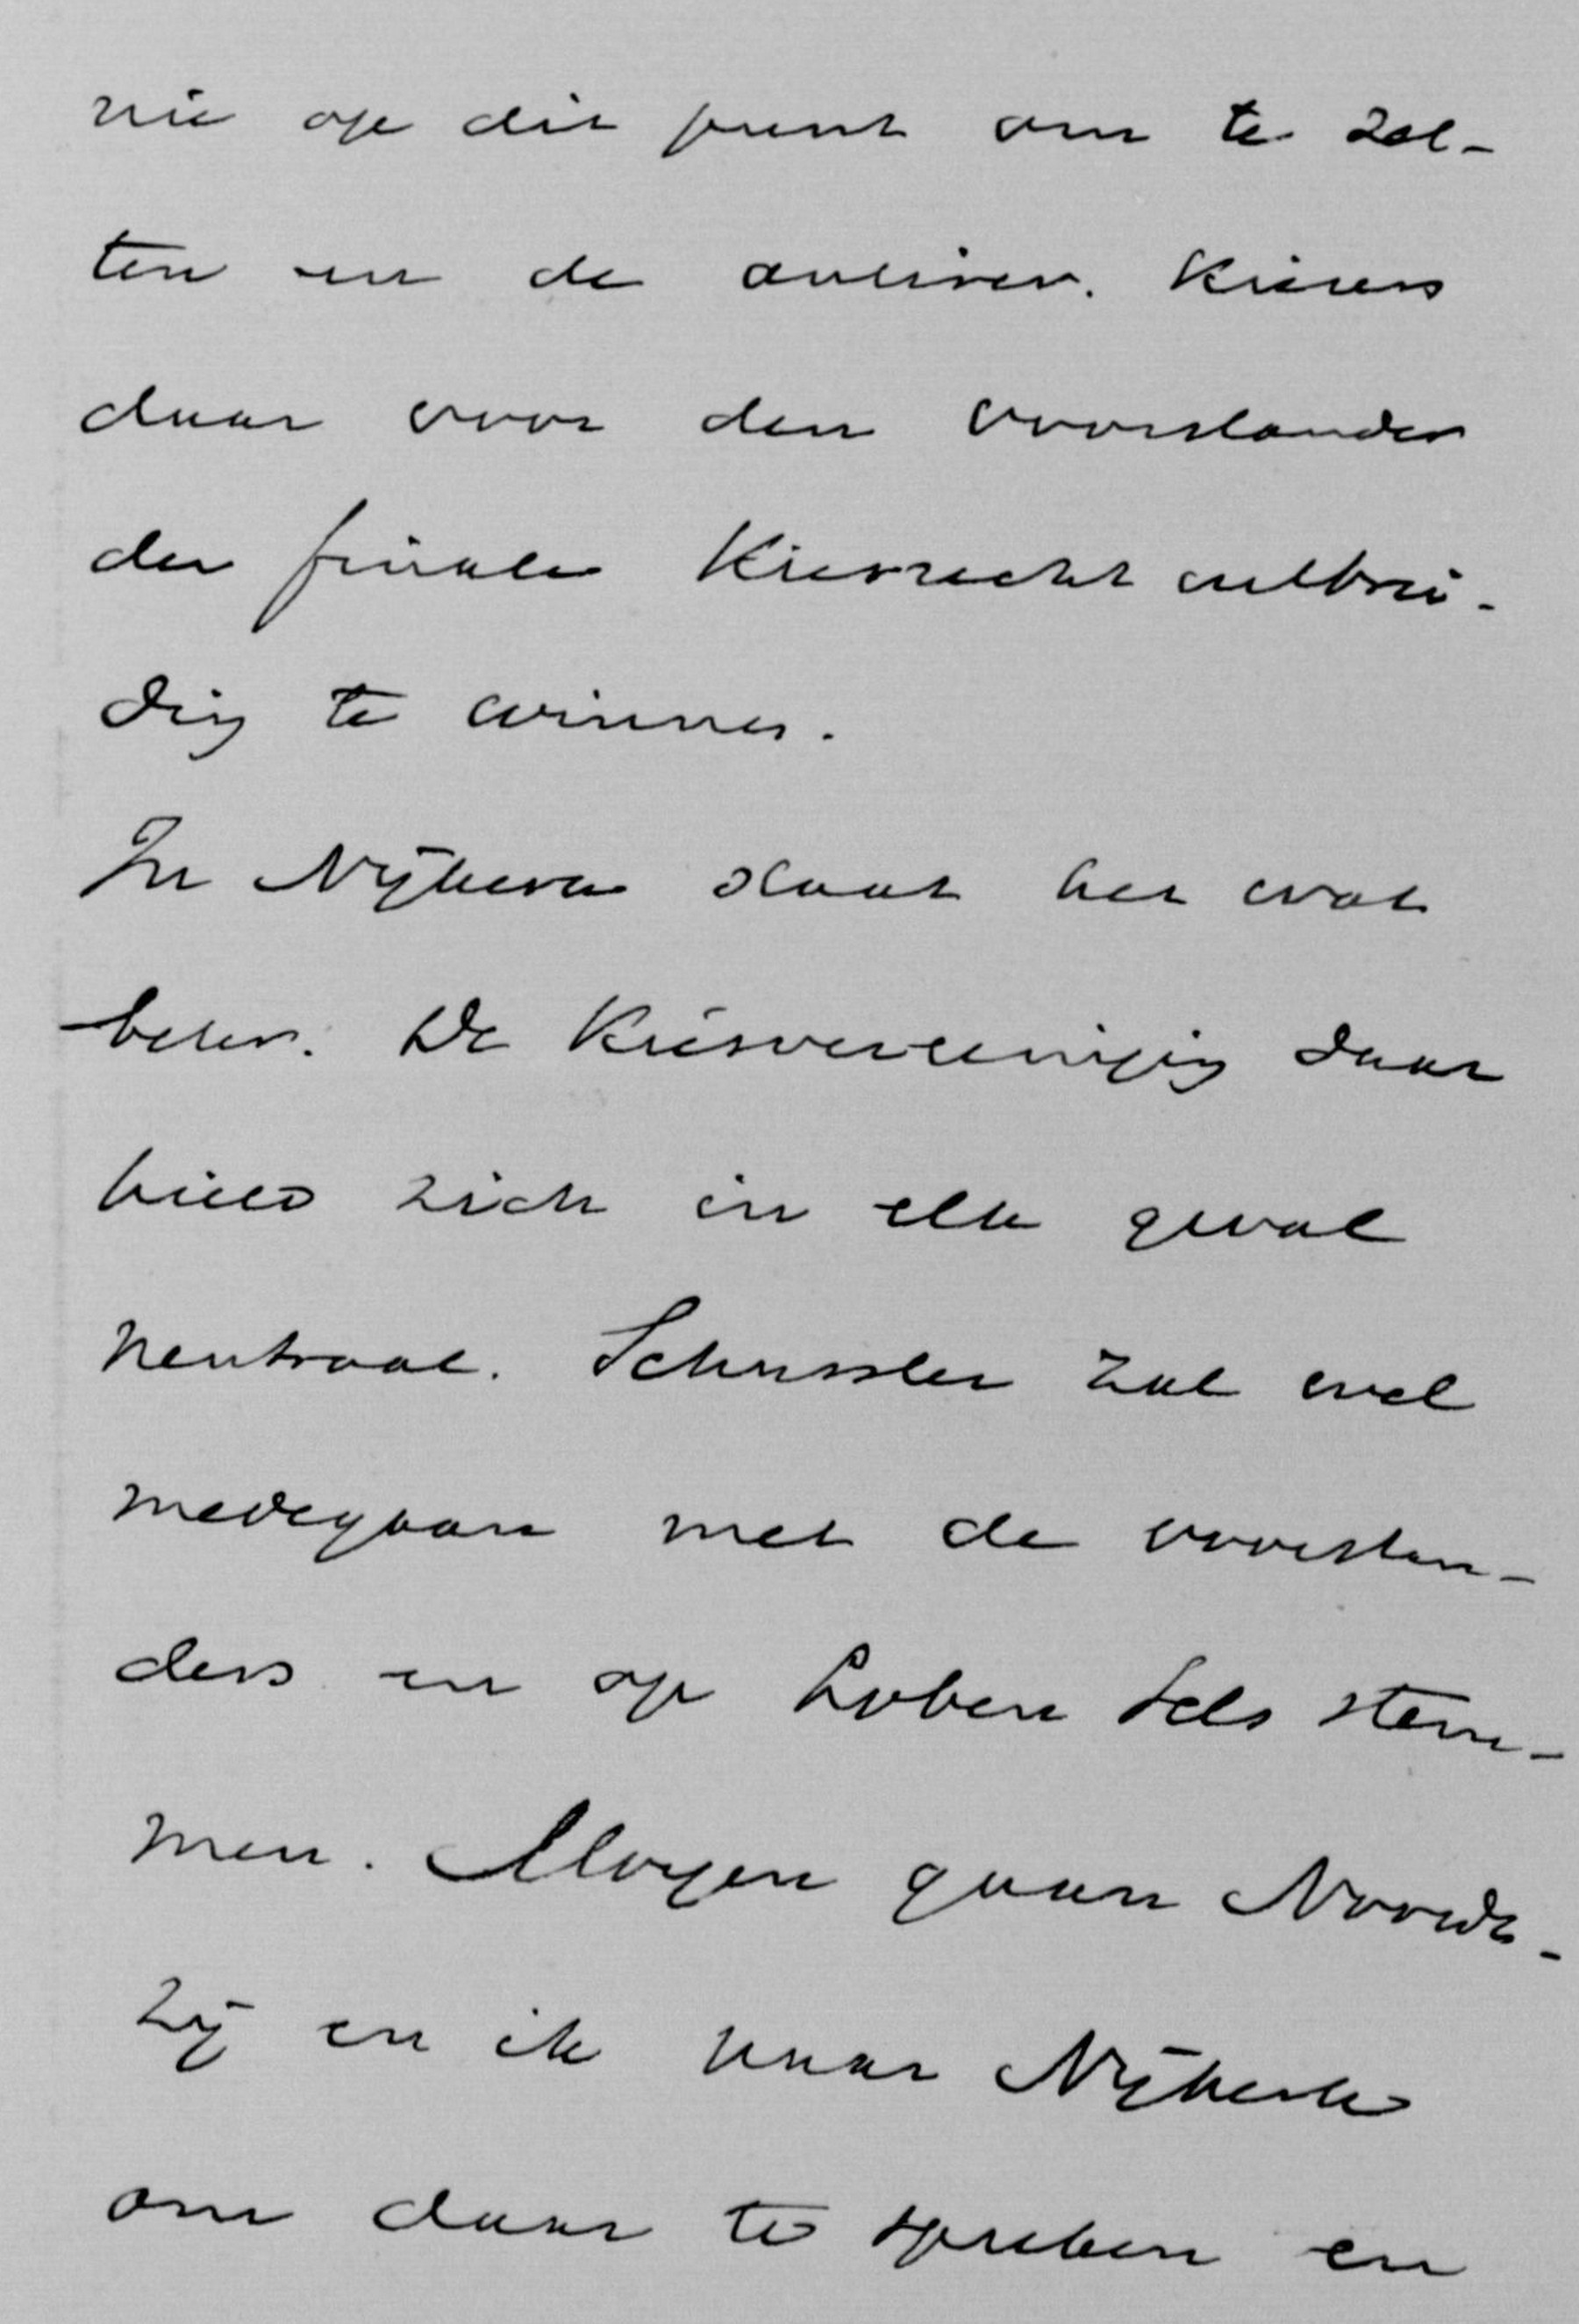 nie op dit punt om te zet-
ten en de antirev. kiezers
daar voor den voorstander
der finale Kiesrechtuitbrei-
ding te winnen.
In Nijkerk staat het wat
beter. De Kiesvereeniging daar
hield zich in elk geval
neutraal. Schussler zal wel
medegaan met de voorstan-
ders en op Loben Sels stem-
men. Morgen gaan Noord-
zij en ik naar Nijkerk
om daar te spreken en